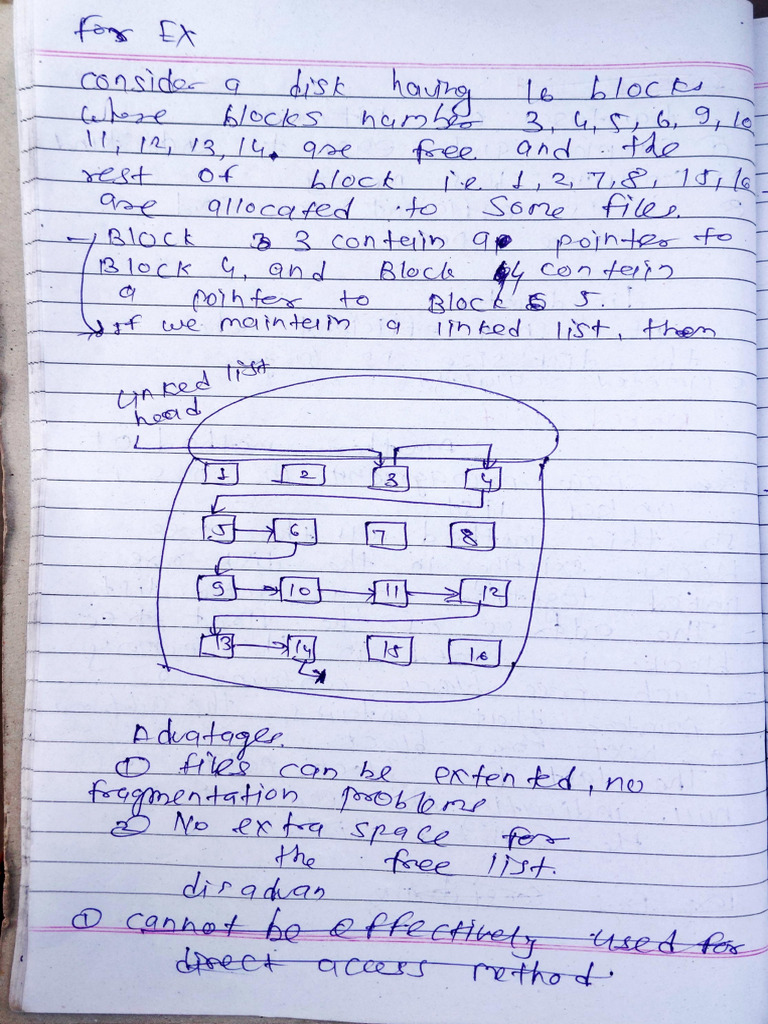 for EX
consider a disk having 16 blocks
where blocks number 3, 4, 5, 6, 9, 10
11, 12, 13, 14. are free and the
rest of block i.e 1, 2, 7, 8, 15, 16
are allocated to some files.
Block 3 contein a pointer to
Block 4, and Block 4 contein
a pointer to Block 5.
If we maintein a linked list, then
Linked list
head
1 2 3 4
5 6 7 8
9 10 11 12
13 14 15 16
Advatages.
① files can be extented, no
fragmentation problems
② No extra space for
the free list.
disadvan
① cannot be effectively used for
direct access method.